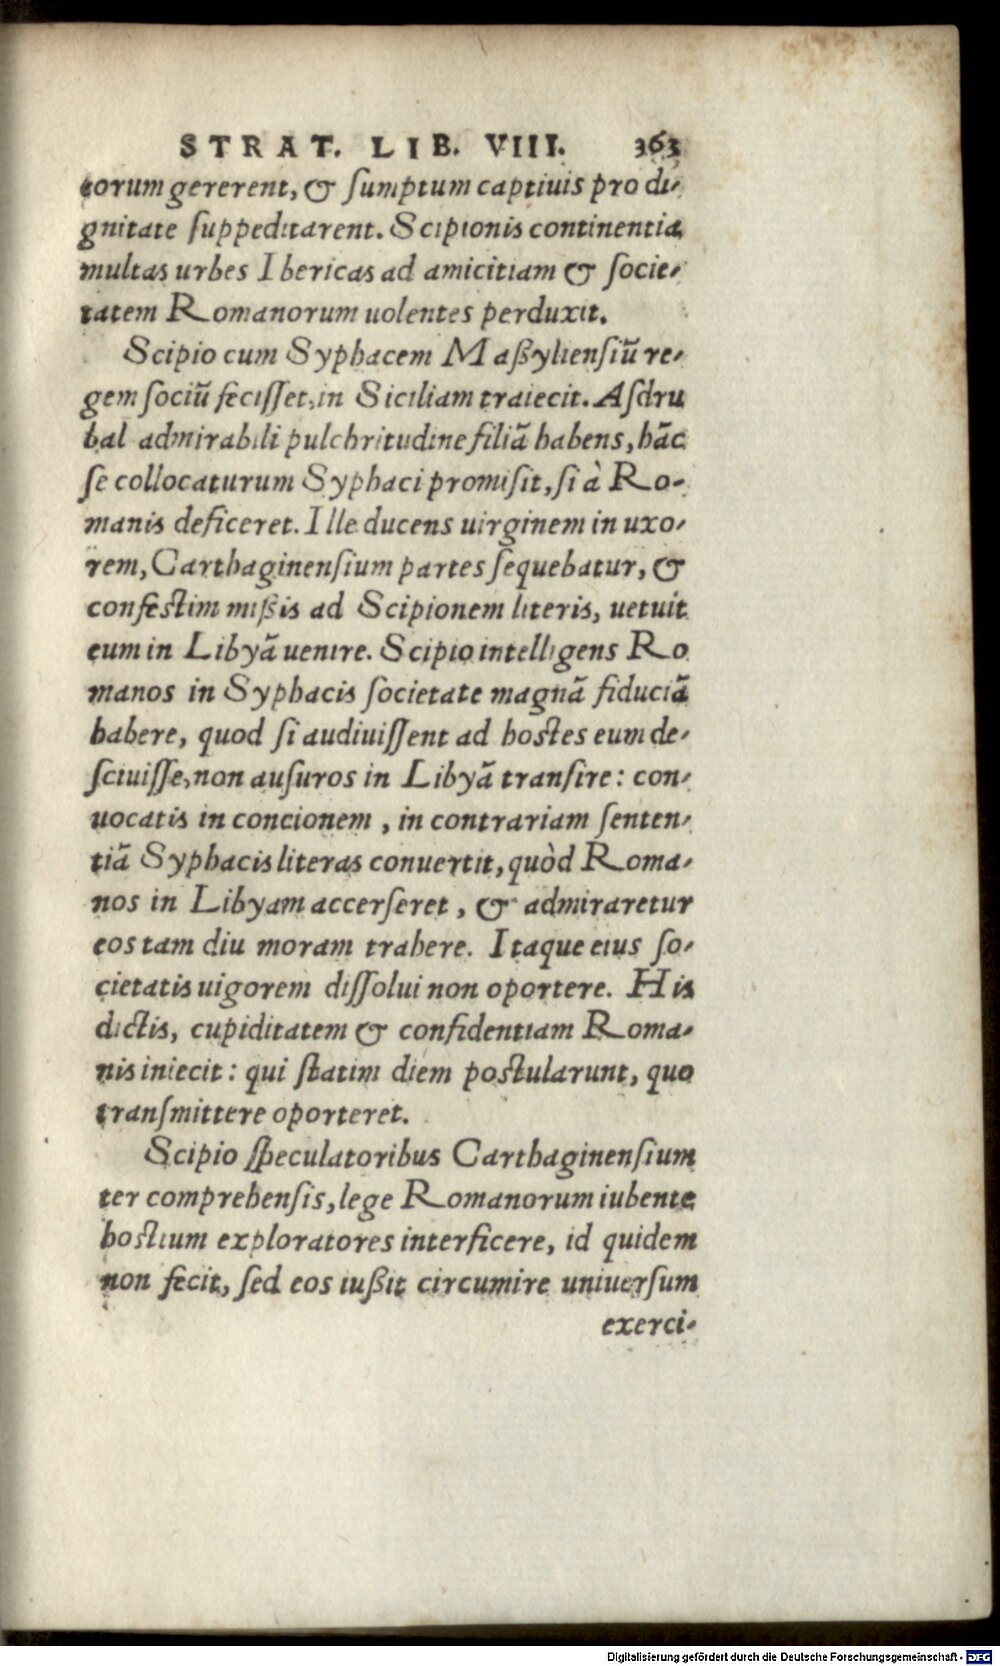 STRAT. LIB. VIII. 363
torum gererent, & ſumptum captiuis pro di-
gnitate ſuppeditarent. Scipionis continentia
multas urbes Ibericas ad amicitiam & ſocie-
tatem Romanorum uolentes perduxit.
Scipio cum Syphacem Maßyliensiũ re-
gem ſociũ feciſſet, in Siciliam traiecit. Aſdru
bal admirabili pulchritudine filiã habens, hãc
ſe collocaturum Syphaci promiſit, ſi à Ro-
manis deficeret. Ille ducens uirginem in uxo-
rem, Carthaginenſium partes ſequebatur, &
confeſtim mißis ad Scipionem literis, uetuit
eum in Libyã uenire. Scipio intelligens Ro
manos in Syphacis ſocietate magnã fiduciã
habere, quod ſi audiuiſſent ad hoſtes eum de-
ſciuiſſe, non auſuros in Libyã tranſire: con-
uocatis in concionem, in contrariam ſenten-
tiã Syphacis literas conuertit, quòd Roma-
nos in Libyam accerſeret, & admiraretur
eos tam diu moram trahere. Itaque eius ſo-
cietatis uigorem diſſolui non oportere. His
dictis, cupiditatem & confidentiam Roma-
nis iniecit: qui ſtatim diem poſtularunt, quo
tranſmittere oporteret.
Scipio ſpeculatoribus Carthaginenſium
ter comprehenſis, lege Romanorum iubente
hoſtium exploratores interficere, id quidem
non fecit, ſed eos iußit circumire uniuerſum
exerci-
Digitalisierung gefördert durch die Deutsche Forschungsgemeinschaft - DFG